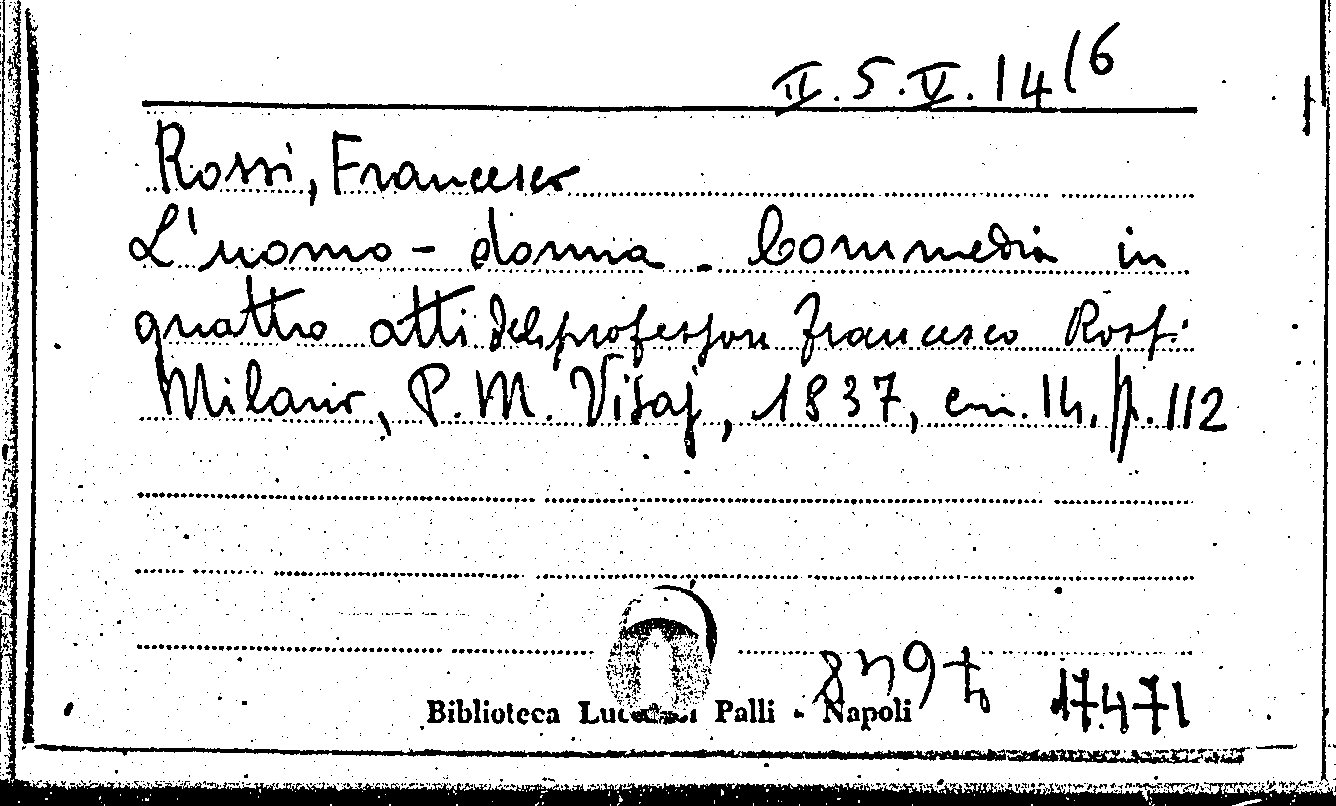 II.5.V.14(6
Rossi, Francesco
L'uomo - donna. Commedia in
quattro atti del professore Francesco Rossi
Milano, P. M. Visaj, 1837, cm. 14. p. 112
17471
Biblioteca Lucchesi Palli - Napoli